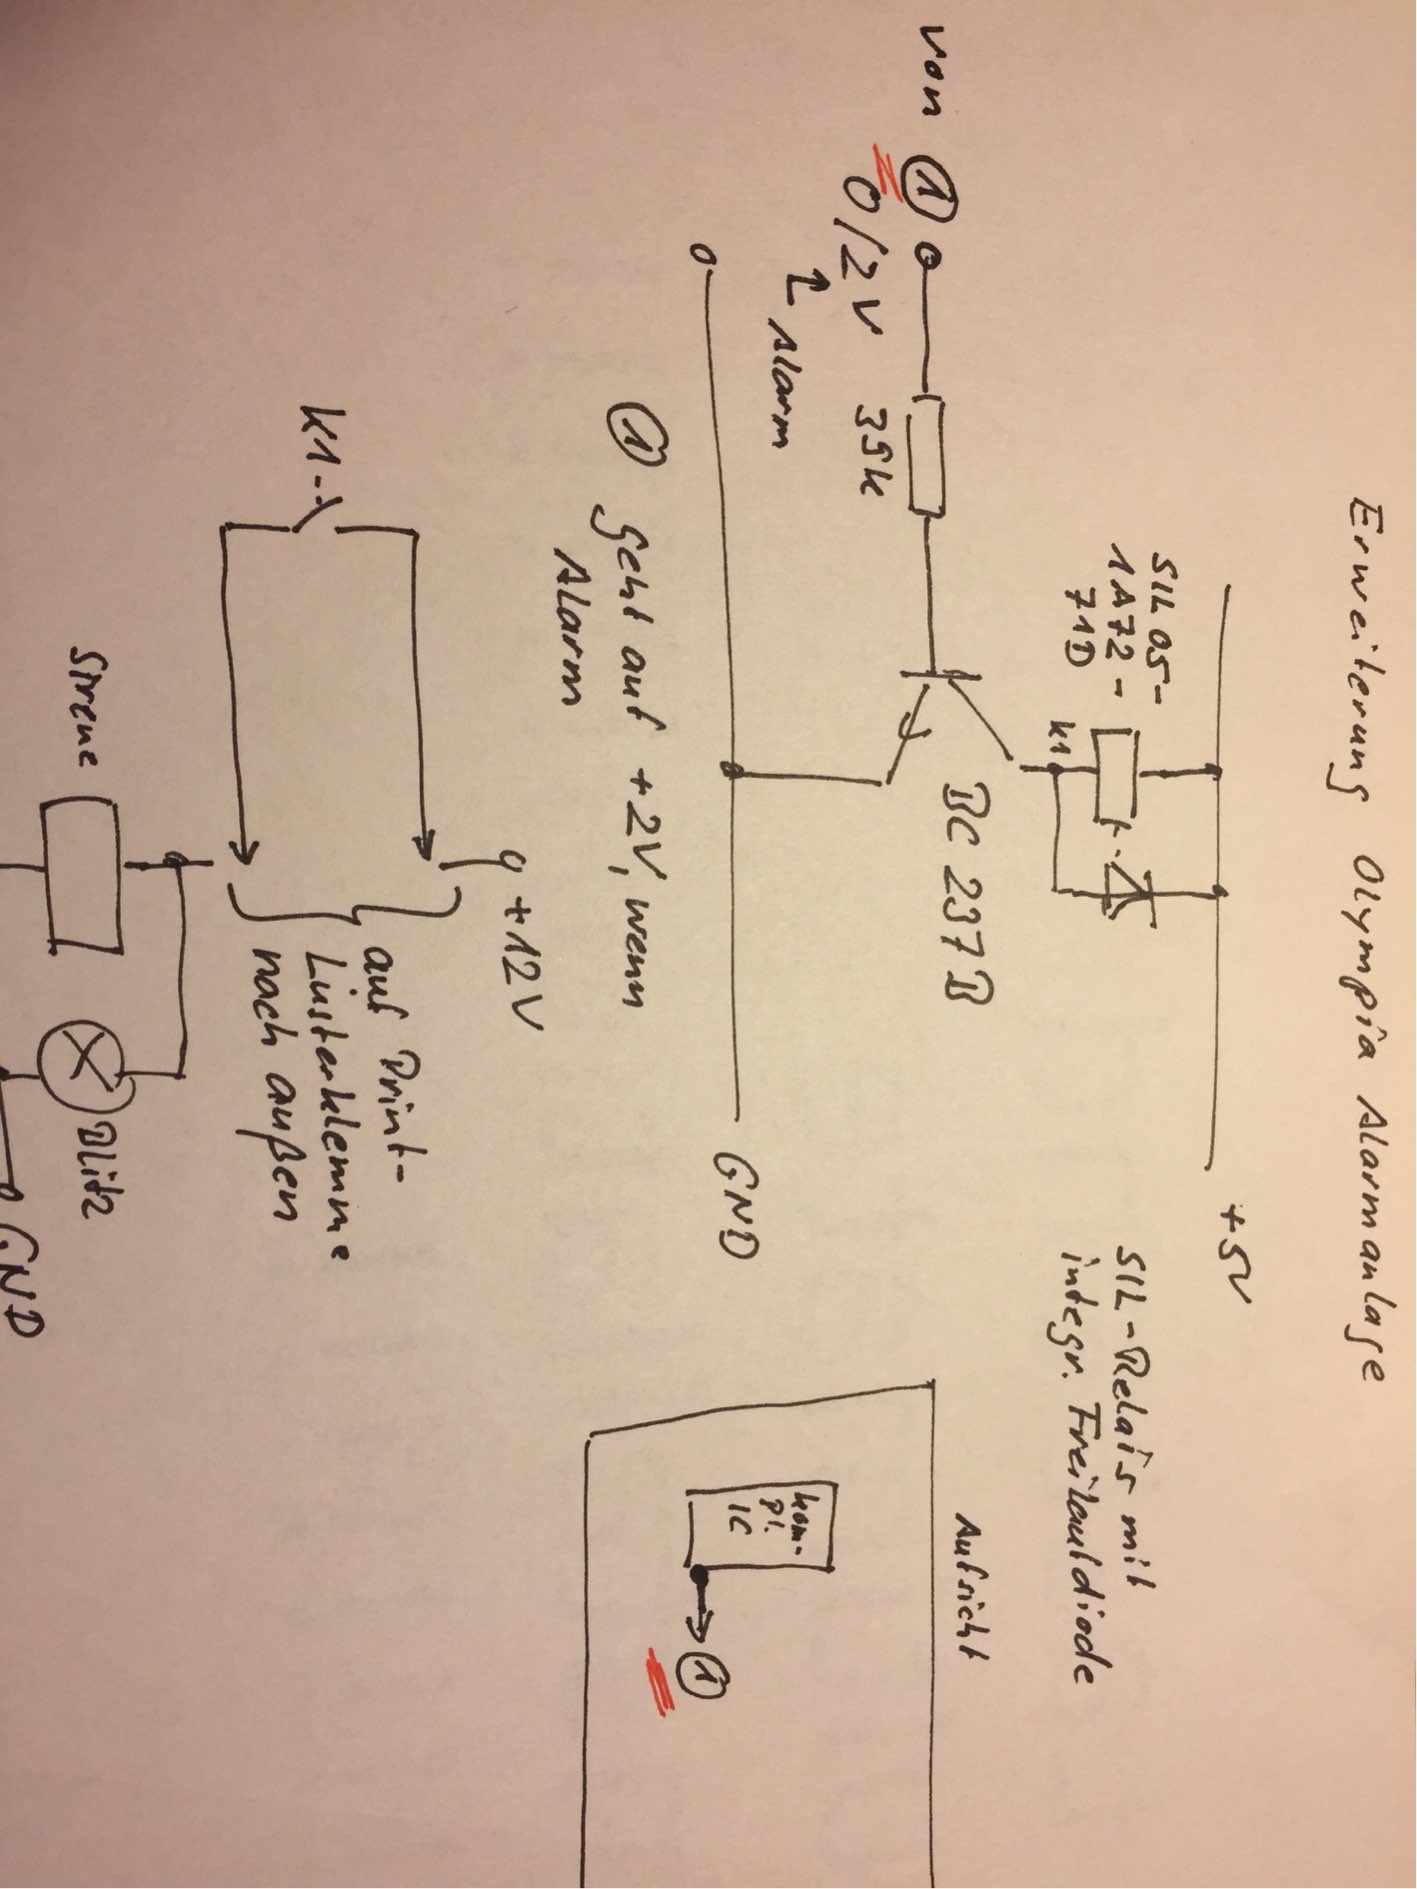 Erweiterung Olympia Alarmanlage
+5V
SIL05-
1A72-
71D
K1
SIL-Relais mit
integr. Freilaufdiode
BC 237B
von ①
0/2V
39k
Alarm
GND
① geht auf +2V, wenn
Alarm
Aufsicht
Kom-
pl.
IC
①
+12V
K1
auf Print-
Lüsterklemme
nach außen
Sirene
Blitz
GND